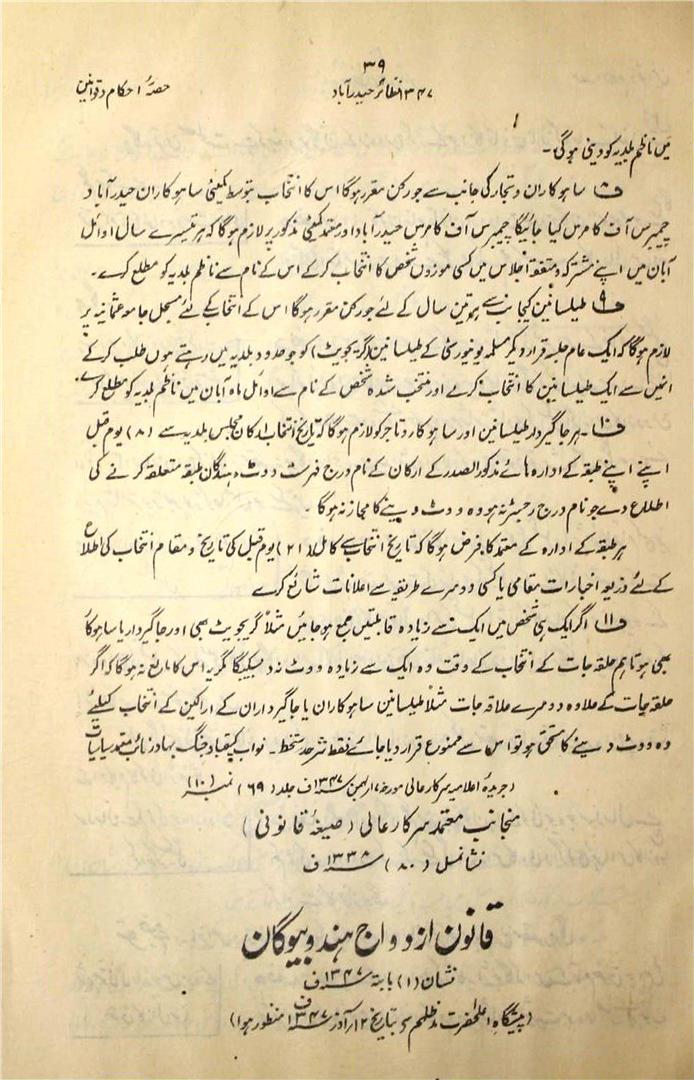 ۳۹
۱۳۴۷ نظائر حیدرآباد
حصۂ احکام و قوانین
میں ناظم بلدیہ کو دینی ہوگی۔
ف۸ ساہوکاران و تجار کی جانب سے جو رکن مقرر ہوگا اس کا انتخاب بتوسط کمیٹی ساہوکاران حیدرآباد و
چیمبرس آف کامرس کیا جائیگا چیمبرس آف کامرس حیدرآباد اور معتمد کمیٹی مذکور پر لازم ہوگا کہ ہر تیسرے سال اوائل
آبان میں اپنے مشترکہ و متفقہ اجلاس میں کسی موزوں شخص کا انتخاب کرکے اس کے نام سے ناظم بلدیہ کو مطلع کرے۔
ف۹ طیلسانین کیجانب سے ہر تین سال کے لئے جو رکن مقرر ہوگا اس کے انتخاب کے لئے مسجل جامعہ عثمانیہ پر
لازم ہوگا کہ ایک عام جلسہ قرار دیکر مسلمہ یونیورسٹی کے طیلسانین (گریجویٹ) کو جو حدود بلدیہ میں رہتے ہوں طلب کرکے
انمیں سے ایک طیلسانین کا انتخاب کرے اور منتخب شدہ شخص کے نام سے اوائل ماہ آبان میں ناظم بلدیہ کو مطلع کرے۔
ف۱۰۔ ہر جاگیردار طیلسانین اور ساہوکار و تاجر کو لازم ہوگا کہ تاریخ انتخاب ارکان مجلس بلدیہ سے (۸۰) یوم قبل
اپنے اپنے طبقہ کے ادارہ ہائے مذکور الصدر کے ارکان کے نام درج فہرست ووٹ دہندگان طبقہ متعلقہ کرنے کی
اطلاع دے جو نام درج رجسٹر نہ ہو وہ ووٹ دینے کا مجاز نہ ہوگا۔
ہر طبقہ کے ادارہ کے معتمد کا فرض ہوگا کہ تاریخ انتخاب سے کامل (۲۱) یوم قبل کی تاریخ و مقام انتخاب کی اطلاع
کے لئے ذریعہ اخبارات مقامی یا کسی دوسرے طریقہ سے اعلانات شائع کرے
ف۱۱ اگر ایک ہی شخص میں ایک سے زیادہ قابلتیں جمع ہو جائیں مثلاً گریجویٹ بھی اور جاگیردار یا ساہوکار
بھی ہو تاہم حلقہ جات کے انتخاب کے وقت وہ ایک سے زیادہ ووٹ نہ دیسکیگا مگر یہ اس کا مانع نہ ہوگا کہ اگر
حلقہ جات کے علاوہ دوسرے علاقہ جات مثلاً طیلسانین ساہوکاران یا جاگیرداران کے اراکین کے انتخاب کیلئے
وہ ووٹ دینے کا مستحق ہو تو اس سے ممنوع قرار دیا جائے فقط شرحد ستخط۔ نواب کیقباد جنگ بہادر نائب معتمد سیاسیات
(جریدہ اعلامیہ سرکار عالی مورخہ ۱۷ بہمن ۱۳۴۷ ف جلد (۶۹) نمبر (۱۰)
منجانب معتمد سرکار عالی (صیغۂ قانونی)
نشانمسل (۸۰) ۱۳۳۸ ف
قانون ازدواج ہندو بیوگان
نشان (۱) بابتہ ۱۳۴۷ ف
(پیشگاہ اعلحضرت مدظلہم سے بتاریخ ۱۲ آذر ۱۳۴۷ ف منظور ہوا)